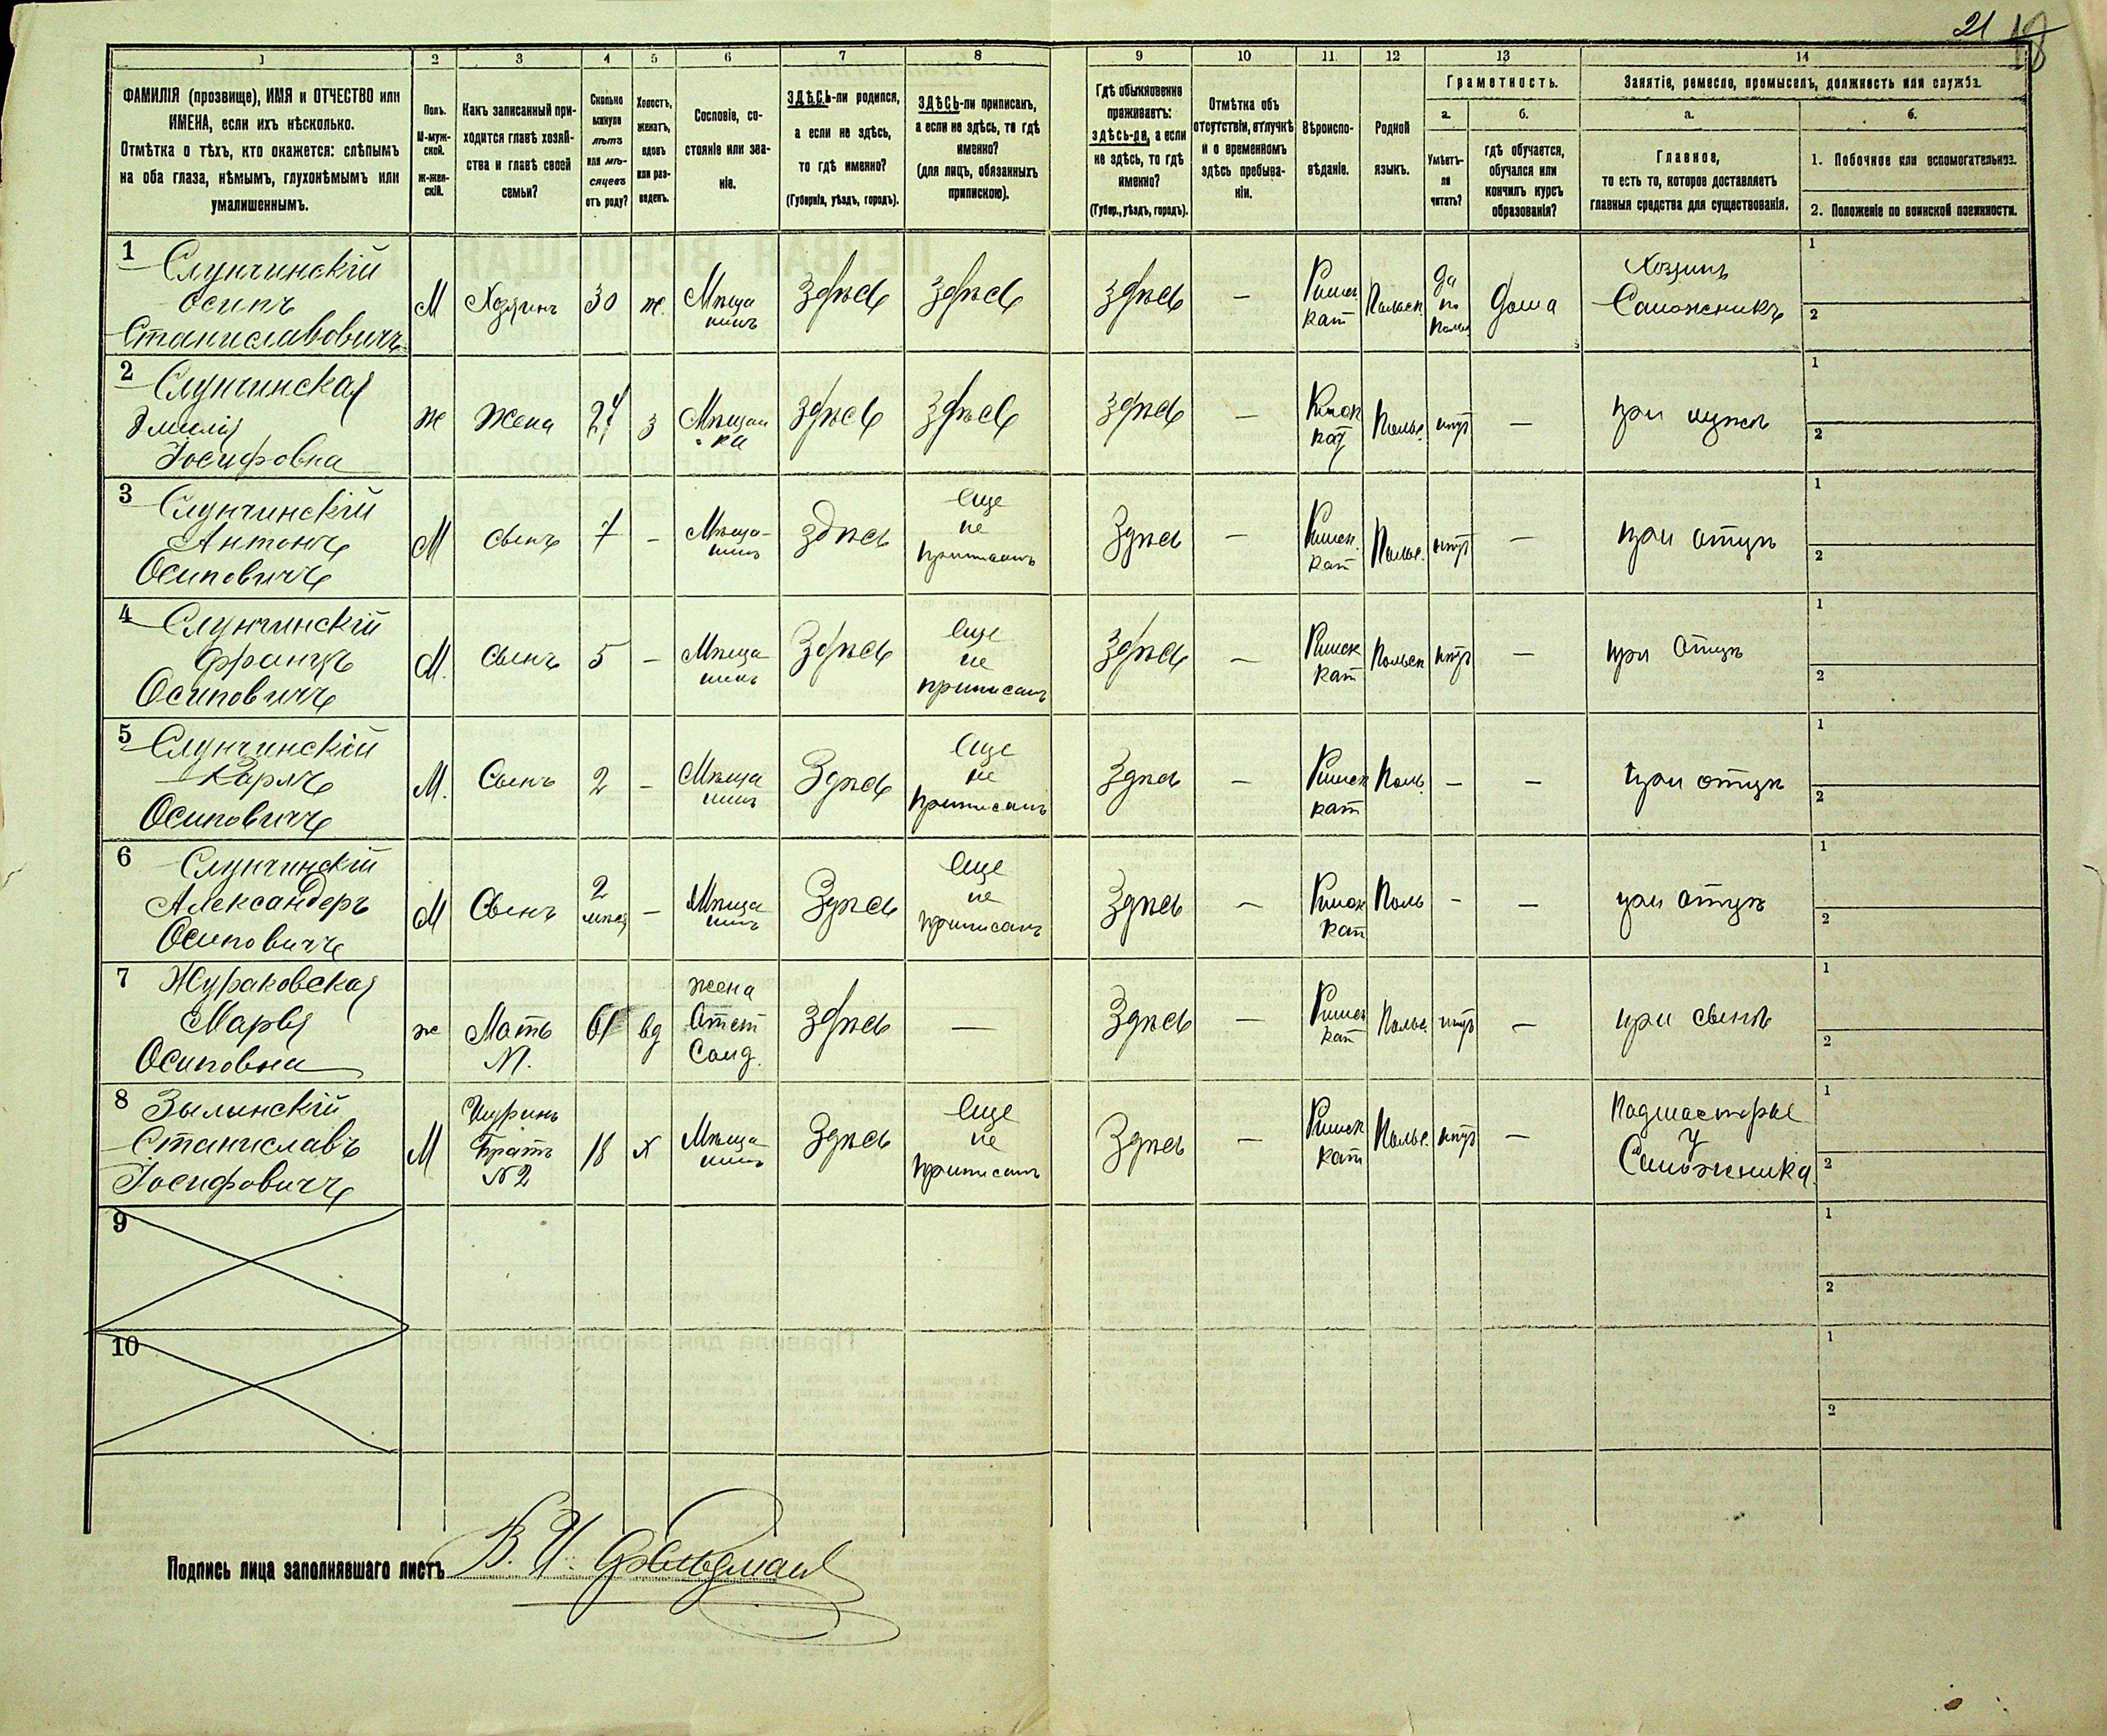 21 18
1 2 3 4 5 6 7 8 9 10 11 12 13 14
ФАМИЛІЯ (прозвище), ИМЯ и ОТЧЕСТВО или
ИМЕНА, если ихъ нѣсколько.
Отмѣтка о тѣхъ, кто окажется: слѣпымъ
на оба глаза, нѣмымъ, глухонѣмымъ или
умалишеннымъ.
Полъ.
М-муж-
ской.
ж-жен-
скій.
Какъ записанный при-
ходится главѣ хозяй-
ства и главѣ своей
семьи?
Сколько
минуло
лѣтъ
или мѣ-
сяцевъ
отъ роду?
Холостъ,
женатъ,
вдовъ
или раз-
веденъ.
Сословіе, со-
стояніе или зва-
ніе.
ЗДѢСЬ-ли родился,
а если не здѣсь,
то гдѣ именно?
(Губернія, уѣздъ, городъ).
ЗДѢСЬ-ли приписанъ,
а если не здѣсь, то гдѣ
именно?
(для лицъ, обязанныхъ
припискою).
Гдѣ обыкновенно
проживаетъ:
здѣсь-ли, а если
не здѣсь, то гдѣ
именно?
(Губер., уѣздъ, городъ).
Отмѣтка объ
отсутствіи, отлучкѣ
и о временномъ
здѣсь пребыва-
ніи.
Вѣроиспо-
вѣданіе.
Родной
языкъ.
Грамотность.
а.
Умѣетъ-
ли
читать?
б.
гдѣ обучается,
обучался или
кончилъ курсъ
образованія?
Занятіе, ремесло, промыселъ, должность или служба.
а.
Главное,
то есть то, которое доставляетъ
главныя средства для существованія.
б.
1. Побочное или вспомогательное.
2. Положеніе по воинской повинности.
1 Слунчинскій
Осипъ
Станиславовичъ
М Хозяинъ 30 ж. Мѣща
нинъ
Здѣсь Здѣсь Здѣсь — Римск
кат
Польск да
по
Польс
дома Хозяинъ
Сапожникъ
1
2
2 Слунчинская
Эмилія
Іосифовна
ж Жена 27 з Мѣщан
ка
Здѣсь Здѣсь Здѣсь — Римск
кат
Польс. нѣтъ — при мужѣ
1
2
3 Слунчинскій
Антонъ
Осиповичъ
М Сынъ 7 — Мѣща-
нинъ
здѣсь Еще
не
приписанъ
Здѣсь — Римск.
кат
Польс. нѣтъ — при отцѣ
1
2
4 Слунчинскій
Францъ
Осиповичъ
М. Сынъ 5 — Мѣща
нинъ
Здѣсь Еще
не
приписанъ
Здѣсь — Римск
кат
Польск нѣтъ — при отцѣ
1
2
5 Слунчинскій
Карлъ
Осиповичъ
М. Сынъ 2 — Мѣща
нинъ
Здѣсь Еще
не
приписанъ
Здѣсь — Римск
кат
Поль — — при отцѣ
1
2
6 Слунчинскій
Александеръ
Осиповичъ
М Сынъ 2
мѣсяц
— Мѣща
нинъ
Здѣсь Еще
не
приписанъ
Здѣсь — Римск
кат
Поль — — при отцѣ
1
2
7 Жураковская
Марья
Осиповна
ж Мать
№1.
61 вд жена
Отст
Солд.
Здѣсь — Здѣсь — Римск
кат
Польс нѣтъ — при сынѣ
1
2
8 Зылинскій
Станиславъ
Іосифовичъ
М Шуринъ
Братъ
№2
18 х Мѣща
нинъ
Здѣсь Еще
не
приписанъ
Здѣсь — Римск
кат
Польс. нѣтъ — Подмастерье
у
Сапожника.
1
2
9
1
2
10
1
2
Подпись лица заполнявшаго листъ